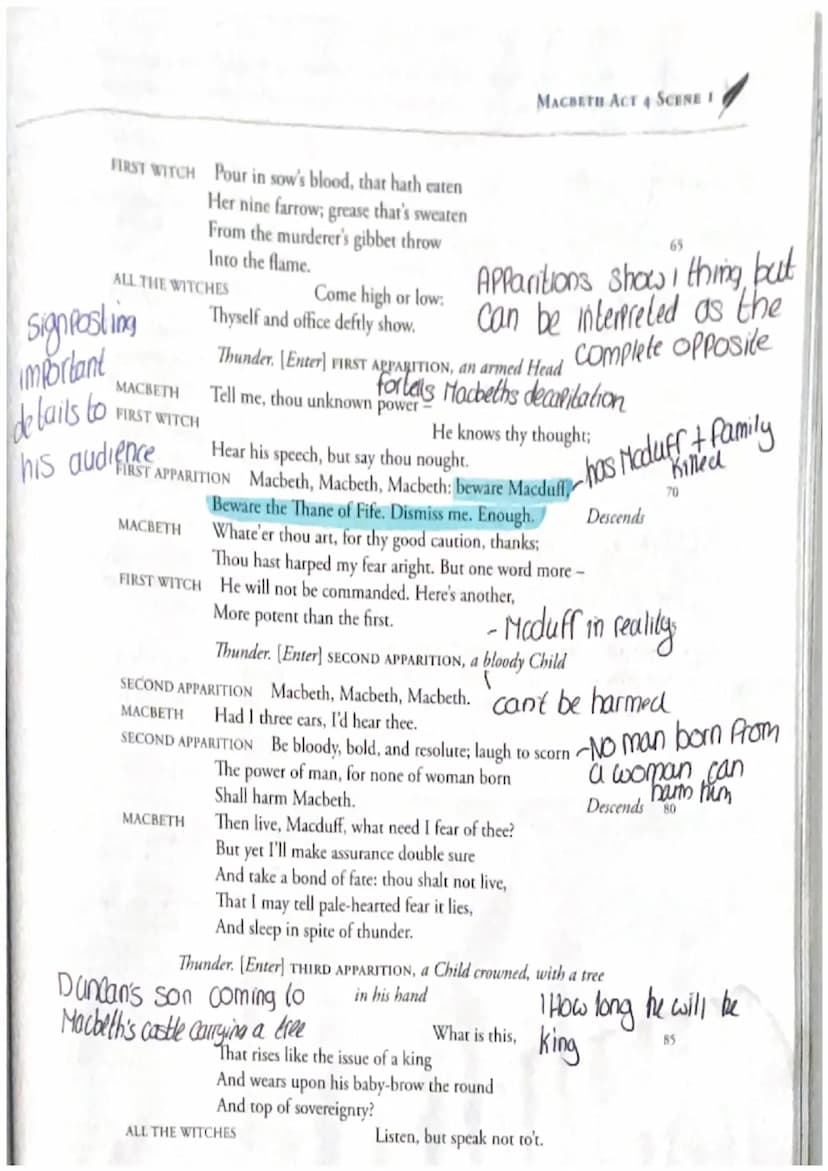 MACBETH ACT 4 SCENE 1
FIRST WITCH Pour in sow's blood, that hath eaten
Her nine farrow; grease that's sweaten
From the murderer's gibbet throw 65
Into the flame.
ALL THE WITCHES Come high or low:
Thyself and office deftly show.
Apparitions show 1 thing, but
can be interpreted as the
complete opposite
signposting
important
details to
his audience
Thunder. [Enter] FIRST APPARITION, an armed Head
fortells Macbeths decapitation
MACBETH Tell me, thou unknown power –
FIRST WITCH He knows thy thought;
Hear his speech, but say thou nought.
FIRST APPARITION Macbeth, Macbeth, Macbeth: beware Macduff, 70
- has Mcduff + family
killed
Beware the Thane of Fife. Dismiss me. Enough. Descends
MACBETH Whate'er thou art, for thy good caution, thanks;
Thou hast harped my fear aright. But one word more –
FIRST WITCH He will not be commanded. Here's another,
More potent than the first.
- Mcduff in reality
Thunder. [Enter] SECOND APPARITION, a bloody Child
can't be harmed
SECOND APPARITION Macbeth, Macbeth, Macbeth.
MACBETH Had I three ears, I'd hear thee.
SECOND APPARITION Be bloody, bold, and resolute; laugh to scorn
The power of man, for none of woman born
Shall harm Macbeth. Descends 80
- No man born from
a woman can
harm him
MACBETH Then live, Macduff, what need I fear of thee?
But yet I'll make assurance double sure
And take a bond of fate: thou shalt not live,
That I may tell pale-hearted fear it lies,
And sleep in spite of thunder.
Thunder. [Enter] THIRD APPARITION, a Child crowned, with a tree
in his hand
Duncan's son coming to
Macbeth's castle carrying a tree
What is this, 85
1 How long he will be
king
That rises like the issue of a king
And wears upon his baby-brow the round
And top of sovereignty?
ALL THE WITCHES Listen, but speak not to't.